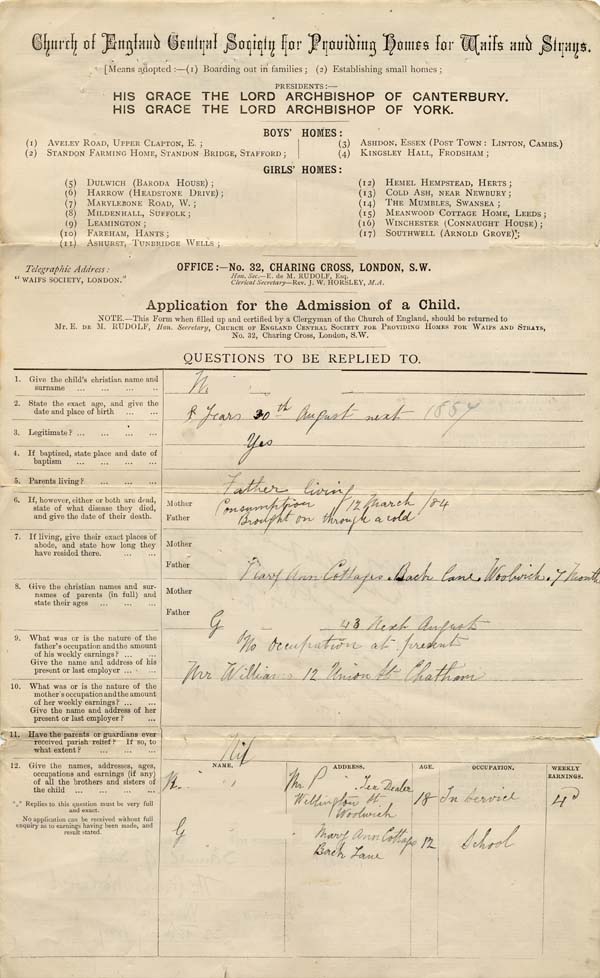 Church of England Central Society for Providing Homes for Waifs and Strays.
[Means adopted :—(1) Boarding out in families; (2) Establishing small homes;
PRESIDENTS:—
HIS GRACE THE LORD ARCHBISHOP OF CANTERBURY.
HIS GRACE THE LORD ARCHBISHOP OF YORK.
BOYS' HOMES:
(1) AVELEY ROAD, UPPER CLAPTON, E. ;
(2) STANDON FARMING HOME, STANDON BRIDGE, STAFFORD ;
(3) ASHDON, ESSEX (POST TOWN : LINTON, CAMBS.)
(4) KINGSLEY HALL, FRODSHAM ;
GIRLS' HOMES:
(5) DULWICH (BARODA HOUSE) ;
(6) HARROW (HEADSTONE DRIVE) ;
(7) MARYLEBONE ROAD, W. ;
(8) MILDENHALL, SUFFOLK ;
(9) LEAMINGTON ;
(10) FAREHAM, HANTS ;
(11) ASHURST, TUNBRIDGE WELLS ;
(12) HEMEL HEMPSTEAD, HERTS ;
(13) COLD ASH, NEAR NEWBURY ;
(14) THE MUMBLES, SWANSEA ;
(15) MEANWOOD COTTAGE HOME, LEEDS ;
(16) WINCHESTER (CONNAUGHT HOUSE) ;
(17) SOUTHWELL (ARNOLD GROVE) ;
Telegraphic Address :
"WAIFS SOCIETY, LONDON."
OFFICE :—No. 32, CHARING CROSS, LONDON, S.W.
Hon. Sec.—E. de M. RUDOLF, Esq.
Clerical Secretary—Rev. J. W. HORSLEY, M.A.
Application for the Admission of a Child.
NOTE.—This Form when filled up and certified by a Clergyman of the Church of England, should be returned to
Mr. E. DE M. RUDOLF, Hon. Secretary, CHURCH OF ENGLAND CENTRAL SOCIETY FOR PROVIDING HOMES FOR WAIFS AND STRAYS,
No. 32, Charing Cross, London, S.W.
QUESTIONS TO BE REPLIED TO.
1. Give the child's christian name and
surname ... ... ... ...
N.
2. State the exact age, and give the
date and place of birth ... ...
8 Years 30th August next 1887
3. Legitimate? ... ... ... ...
Yes
4. If baptized, state place and date of
baptism ... ... ... ...
5. Parents living? ... ... ...
Father living
6. If, however, either or both are dead,
state of what disease they died,
and give the date of their death.
Mother
Father
Consumption 12 March /84
Brought on through a cold
7. If living, give their exact places of
abode, and state how long they
have resided there. ... ...
Mother
Father
Mary Ann Cottages Back Lane Woolwich. 7 Month
8. Give the christian names and sur-
names of parents (in full) and
state their ages ... ... ...
Mother
Father
G 43 Next August
9. What was or is the nature of the
father's occupation and the amount
of his weekly earnings? ... ...
Give the name and address of his
present or last employer ... ...
No occupation at present
Mr Williams 12 Union St Chatham
10. What was or is the nature of the
mother's occupation and the amount
of her weekly earnings? ... ...
Give the name and address of her
present or last employer? ...
11. Have the parents or guardians ever
received parish relief? If so, to
what extent? ... ... ...
Nil
12. Give the names, addresses, ages,
occupations and earnings (if any)
of all the brothers and sisters of
the child ... ... ... ...
*** Replies to this question must be very full
and exact.
No application can be received without full
enquiry as to earnings having been made, and
result stated.
NAME. ADDRESS. AGE. OCCUPATION. WEEKLY EARNINGS.
Mr Dealer
Wellington St
Woolwich
18 In Service
G Mary Ann Cottages 12 School
Back Lane